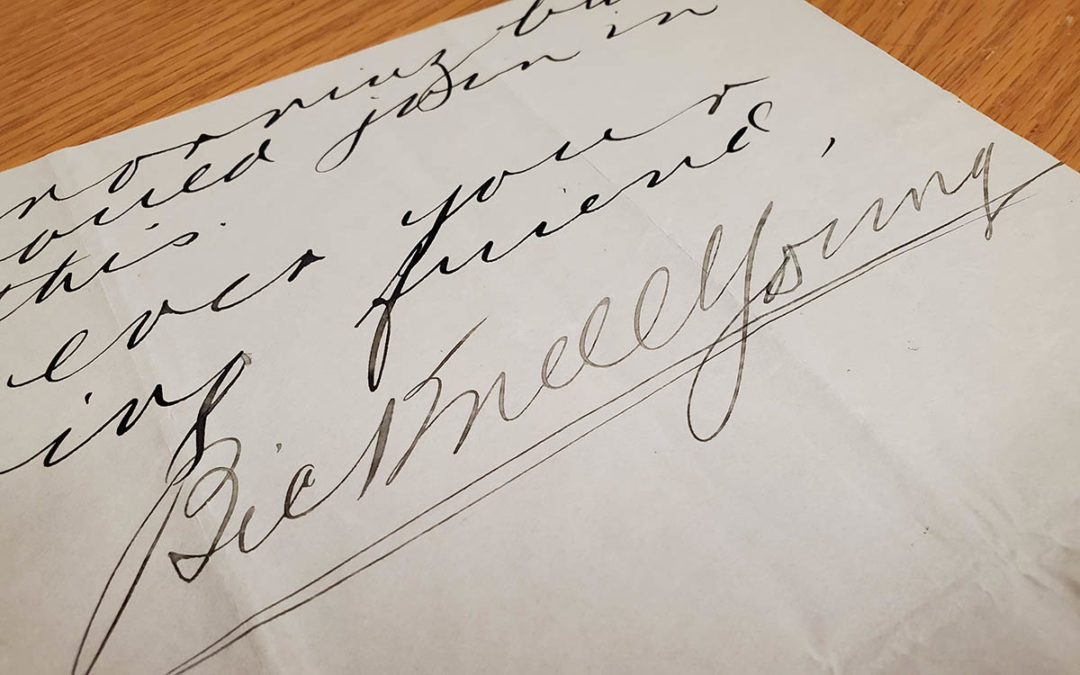 orning bu
join in
this.
ever your
ing friend,
BicKnell Young